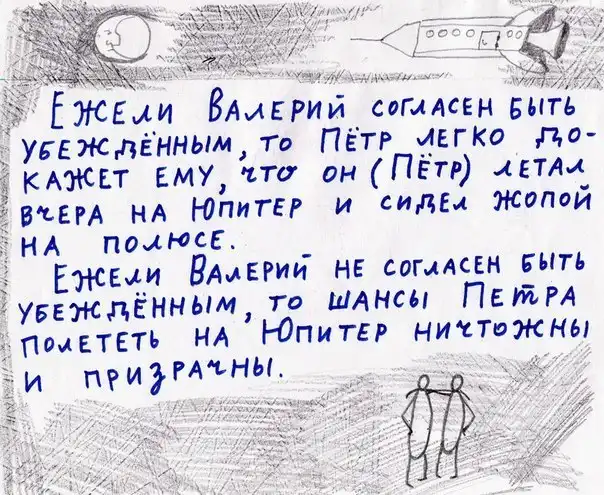 Ежели Валерий согласен быть
убеждённым, то Пётр легко до-
кажет ему, что он (Пётр) летал
вчера на Юпитер и сидел жопой
на полюсе.
Ежели Валерий не согласен быть
убеждённым, то шансы Петра
полететь на Юпитер ничтожны
и призрачны.